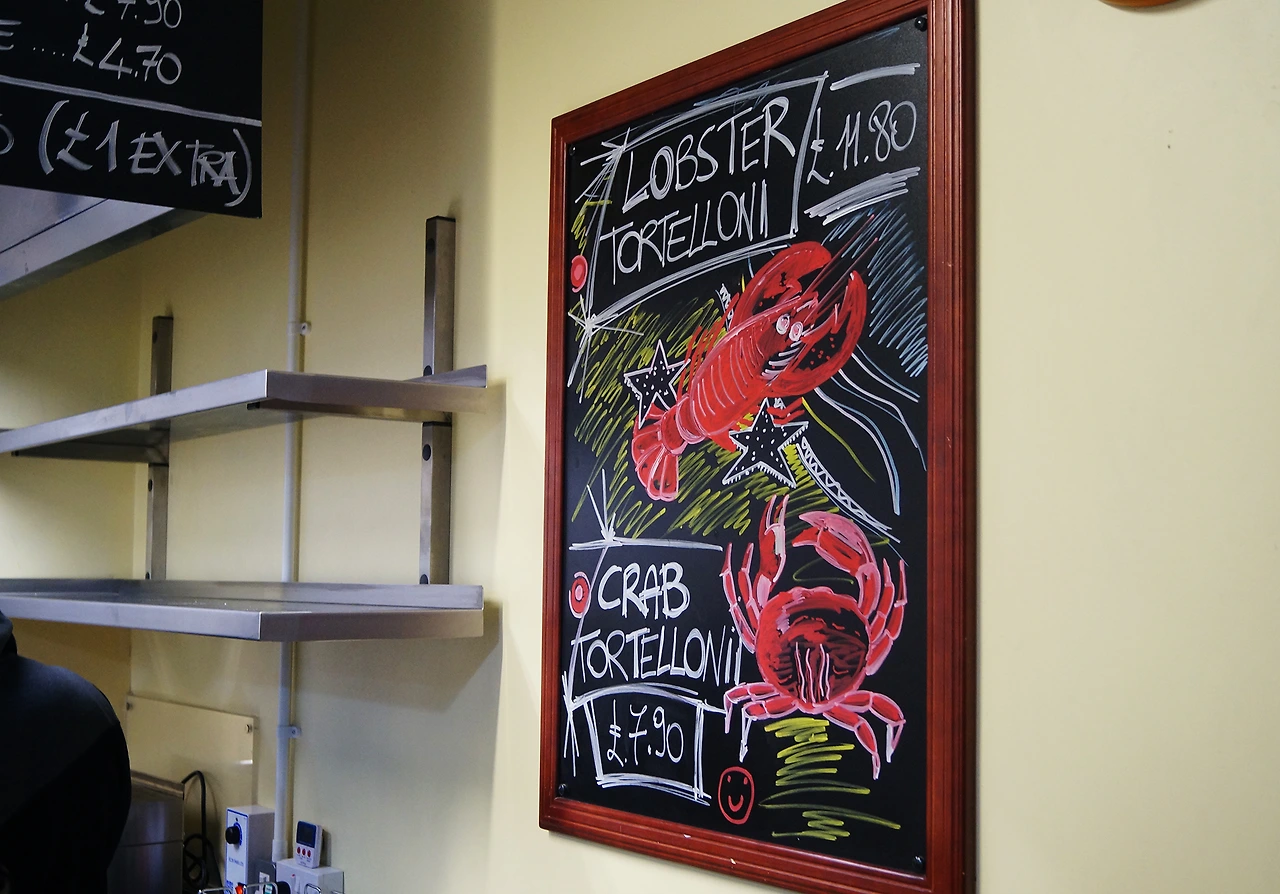 £7.90
E ....£4.70
(£1 EXTRA)
LOBSTER
TORTELLONI
£.11.80
CRAB
TORTELLONI
£.7.90